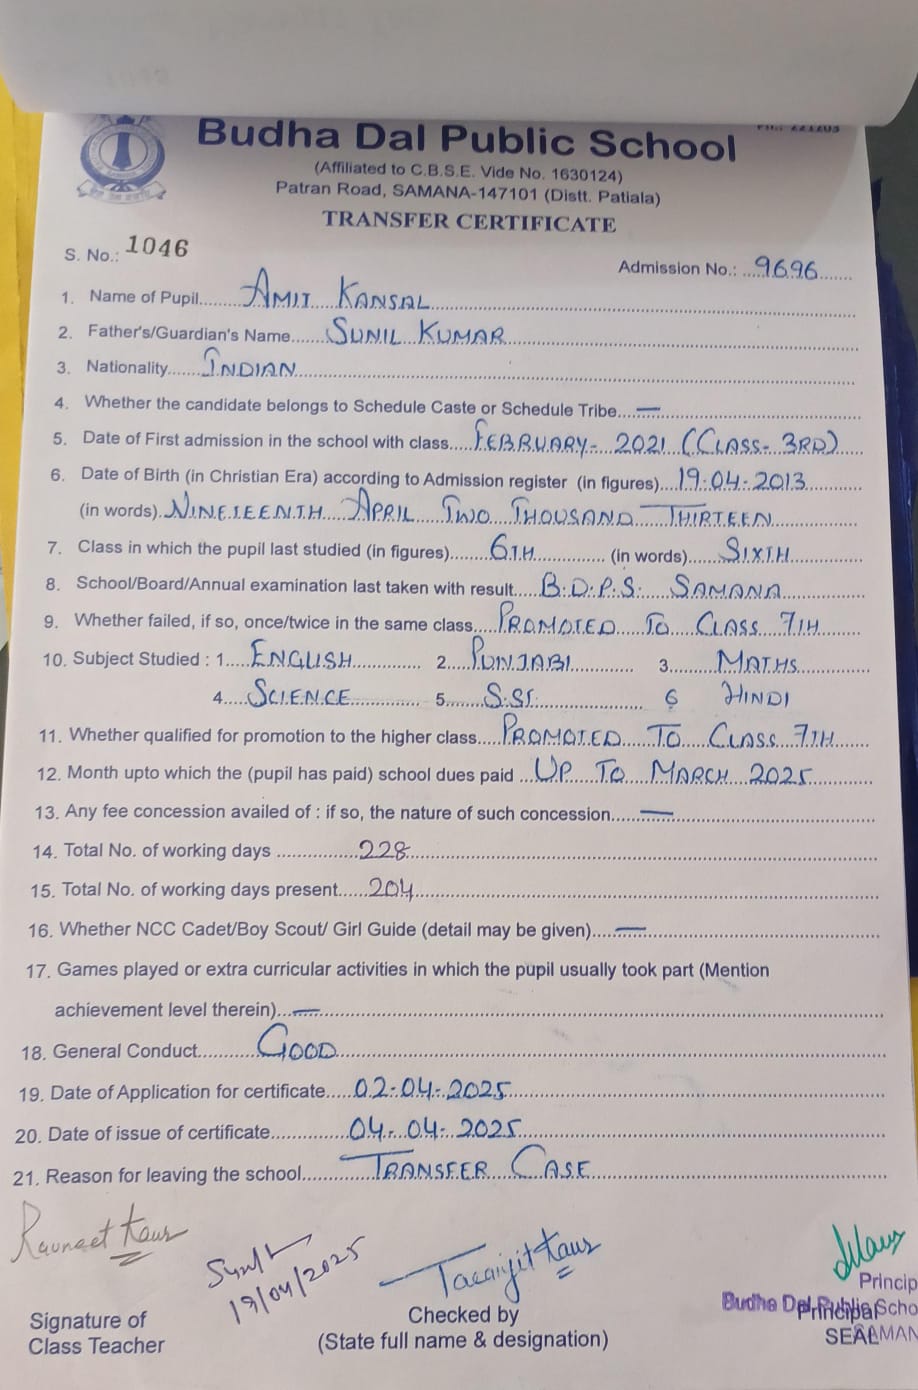 Ph.: 221203
Budha Dal Public School
(Affiliated to C.B.S.E. Vide No. 1630124)
Patran Road, SAMANA-147101 (Distt. Patiala)
TRANSFER CERTIFICATE
S. No.: 1046
Admission No.: 9696
1. Name of Pupil AMIT KANSAL
2. Father's/Guardian's Name SUNIL KUMAR
3. Nationality INDIAN
4. Whether the candidate belongs to Schedule Caste or Schedule Tribe —
5. Date of First admission in the school with class FEBRUARY-2021 (CLASS-3RD)
6. Date of Birth (in Christian Era) according to Admission register (in figures) 19.04.2013
(in words) NINETEENTH APRIL TWO THOUSAND THIRTEEN
7. Class in which the pupil last studied (in figures) 6TH (in words) SIXTH
8. School/Board/Annual examination last taken with result B.D.P.S. SAMANA
9. Whether failed, if so, once/twice in the same class PROMOTED TO CLASS 7TH
10. Subject Studied : 1. ENGLISH 2. PUNJABI 3. MATHS
4. SCIENCE 5. S.ST. 6 HINDI
11. Whether qualified for promotion to the higher class PROMOTED TO CLASS 7TH
12. Month upto which the (pupil has paid) school dues paid UP TO MARCH 2025
13. Any fee concession availed of : if so, the nature of such concession —
14. Total No. of working days 228
15. Total No. of working days present 204
16. Whether NCC Cadet/Boy Scout/ Girl Guide (detail may be given) —
17. Games played or extra curricular activities in which the pupil usually took part (Mention
achievement level therein) —
18. General Conduct GOOD
19. Date of Application for certificate 02-04-2025
20. Date of issue of certificate 04-04-2025
21. Reason for leaving the school TRANSFER CASE
Ravneet Kaur
19/04/2025
Kaur
Signature of
Class Teacher
Checked by
(State full name & designation)
Princip
Budha Dal Public Scho
Principal
SEAL
SAMAN